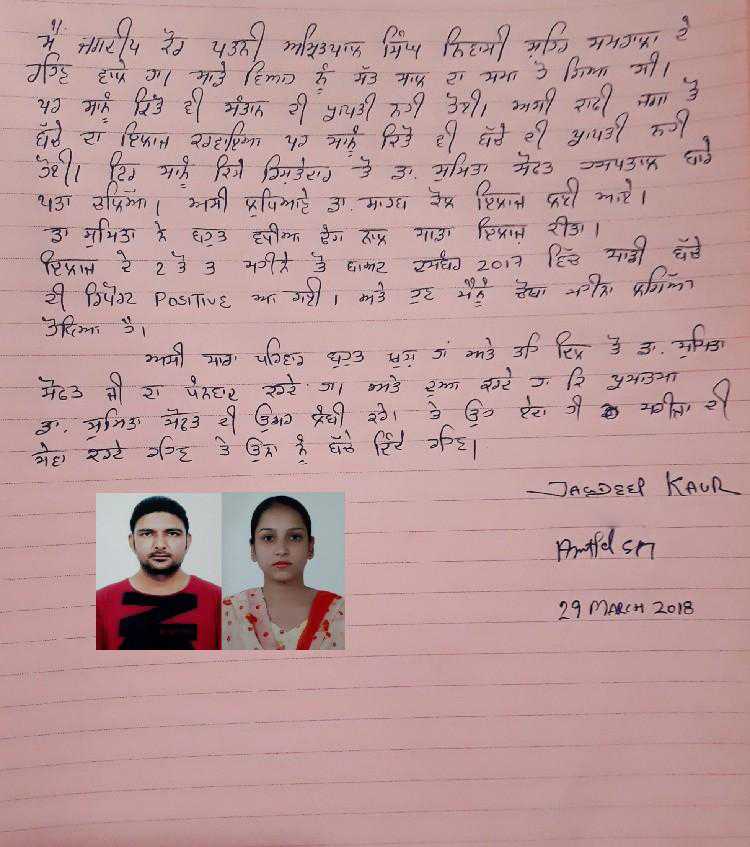 ਮੈਂ ਜਗਦੀਪ ਕੌਰ ਪਤਨੀ ਅਮ੍ਰਿਤਪਾਲ ਸਿੰਘ ਨਿਵਾਸੀ ਸ਼ਹਿਰ ਸਮਰਾਲਾ ਦੇ
ਰਹਿਣ ਵਾਲੇ ਹਾਂ। ਸਾਡੇ ਵਿਆਹ ਨੂੰ ਸੱਤ ਸਾਲ ਦਾ ਸਮਾਂ ਹੋ ਗਿਆ ਸੀ।
ਪਰ ਸਾਨੂੰ ਕਿਤੇ ਵੀ ਸੰਤਾਨ ਦੀ ਪ੍ਰਾਪਤੀ ਨਹੀਂ ਹੋਈ। ਅਸੀਂ ਕਾਫੀ ਜਗਾ ਤੇ
ਬੱਚੇ ਦਾ ਇਲਾਜ ਕਰਵਾਇਆ ਪਰ ਸਾਨੂੰ ਕਿਤੇ ਵੀ ਬੱਚੇ ਦੀ ਪ੍ਰਾਪਤੀ ਨਹੀਂ
ਹੋਈ। ਫਿਰ ਸਾਨੂੰ ਕਿਸੇ ਰਿਸ਼ਤੇਦਾਰ ਤੋਂ ਡਾ. ਸੁਮਿਤਾ ਸੋਫਤ ਹਸਪਤਾਲ ਬਾਰੇ
ਪਤਾ ਚੱਲਿਆ। ਅਸੀਂ ਲੁਧਿਆਣੇ ਡਾ. ਸਾਹਬ ਕੋਲ ਇਲਾਜ ਲਈ ਆਏ।
ਡਾ ਸੁਮਿਤਾ ਨੇ ਬਹੁਤ ਵਧੀਆ ਢੰਗ ਨਾਲ ਸਾਡਾ ਇਲਾਜ ਕੀਤਾ।
ਇਲਾਜ ਦੇ 2 ਤੋਂ 3 ਮਹੀਨੇ ਤੋਂ ਬਾਅਦ ਦਸੰਬਰ 2017 ਵਿੱਚ ਸਾਡੀ ਬੱਚੇ
ਦੀ ਰਿਪੋਰਟ POSITIVE ਆ ਗਈ। ਅਤੇ ਹੁਣ ਮੈਨੂੰ ਚੌਥਾ ਮਹੀਨਾ ਲੱਗਿਆ
ਹੋਇਆ ਹੈ।
ਅਸੀਂ ਸਾਰਾ ਪਰਿਵਾਰ ਬਹੁਤ ਖੁਸ਼ ਹਾਂ ਅਤੇ ਤਹਿ ਦਿਲ ਤੋਂ ਡਾ. ਸੁਮਿਤਾ
ਸੋਫਤ ਜੀ ਦਾ ਧੰਨਵਾਦ ਕਰਦੇ ਹਾਂ। ਅਤੇ ਦੁਆ ਕਰਦੇ ਹਾਂ ਕਿ ਪ੍ਰਮਾਤਮਾ
ਡਾ. ਸੁਮਿਤਾ ਸੋਫਤ ਦੀ ਉਮਰ ਲੰਬੀ ਕਰੇ। ਤੇ ਉਹ ਏਦਾਂ ਹੀ ਮਰੀਜਾਂ ਦੀ
ਸੇਵਾ ਕਰਦੇ ਰਹਿਣ ਤੇ ਉਨਾਂ ਨੂੰ ਬੱਚੇ ਦਿੰਦੇ ਰਹਿਣ।
JAGDEEP KAUR
29 MARCH 2018